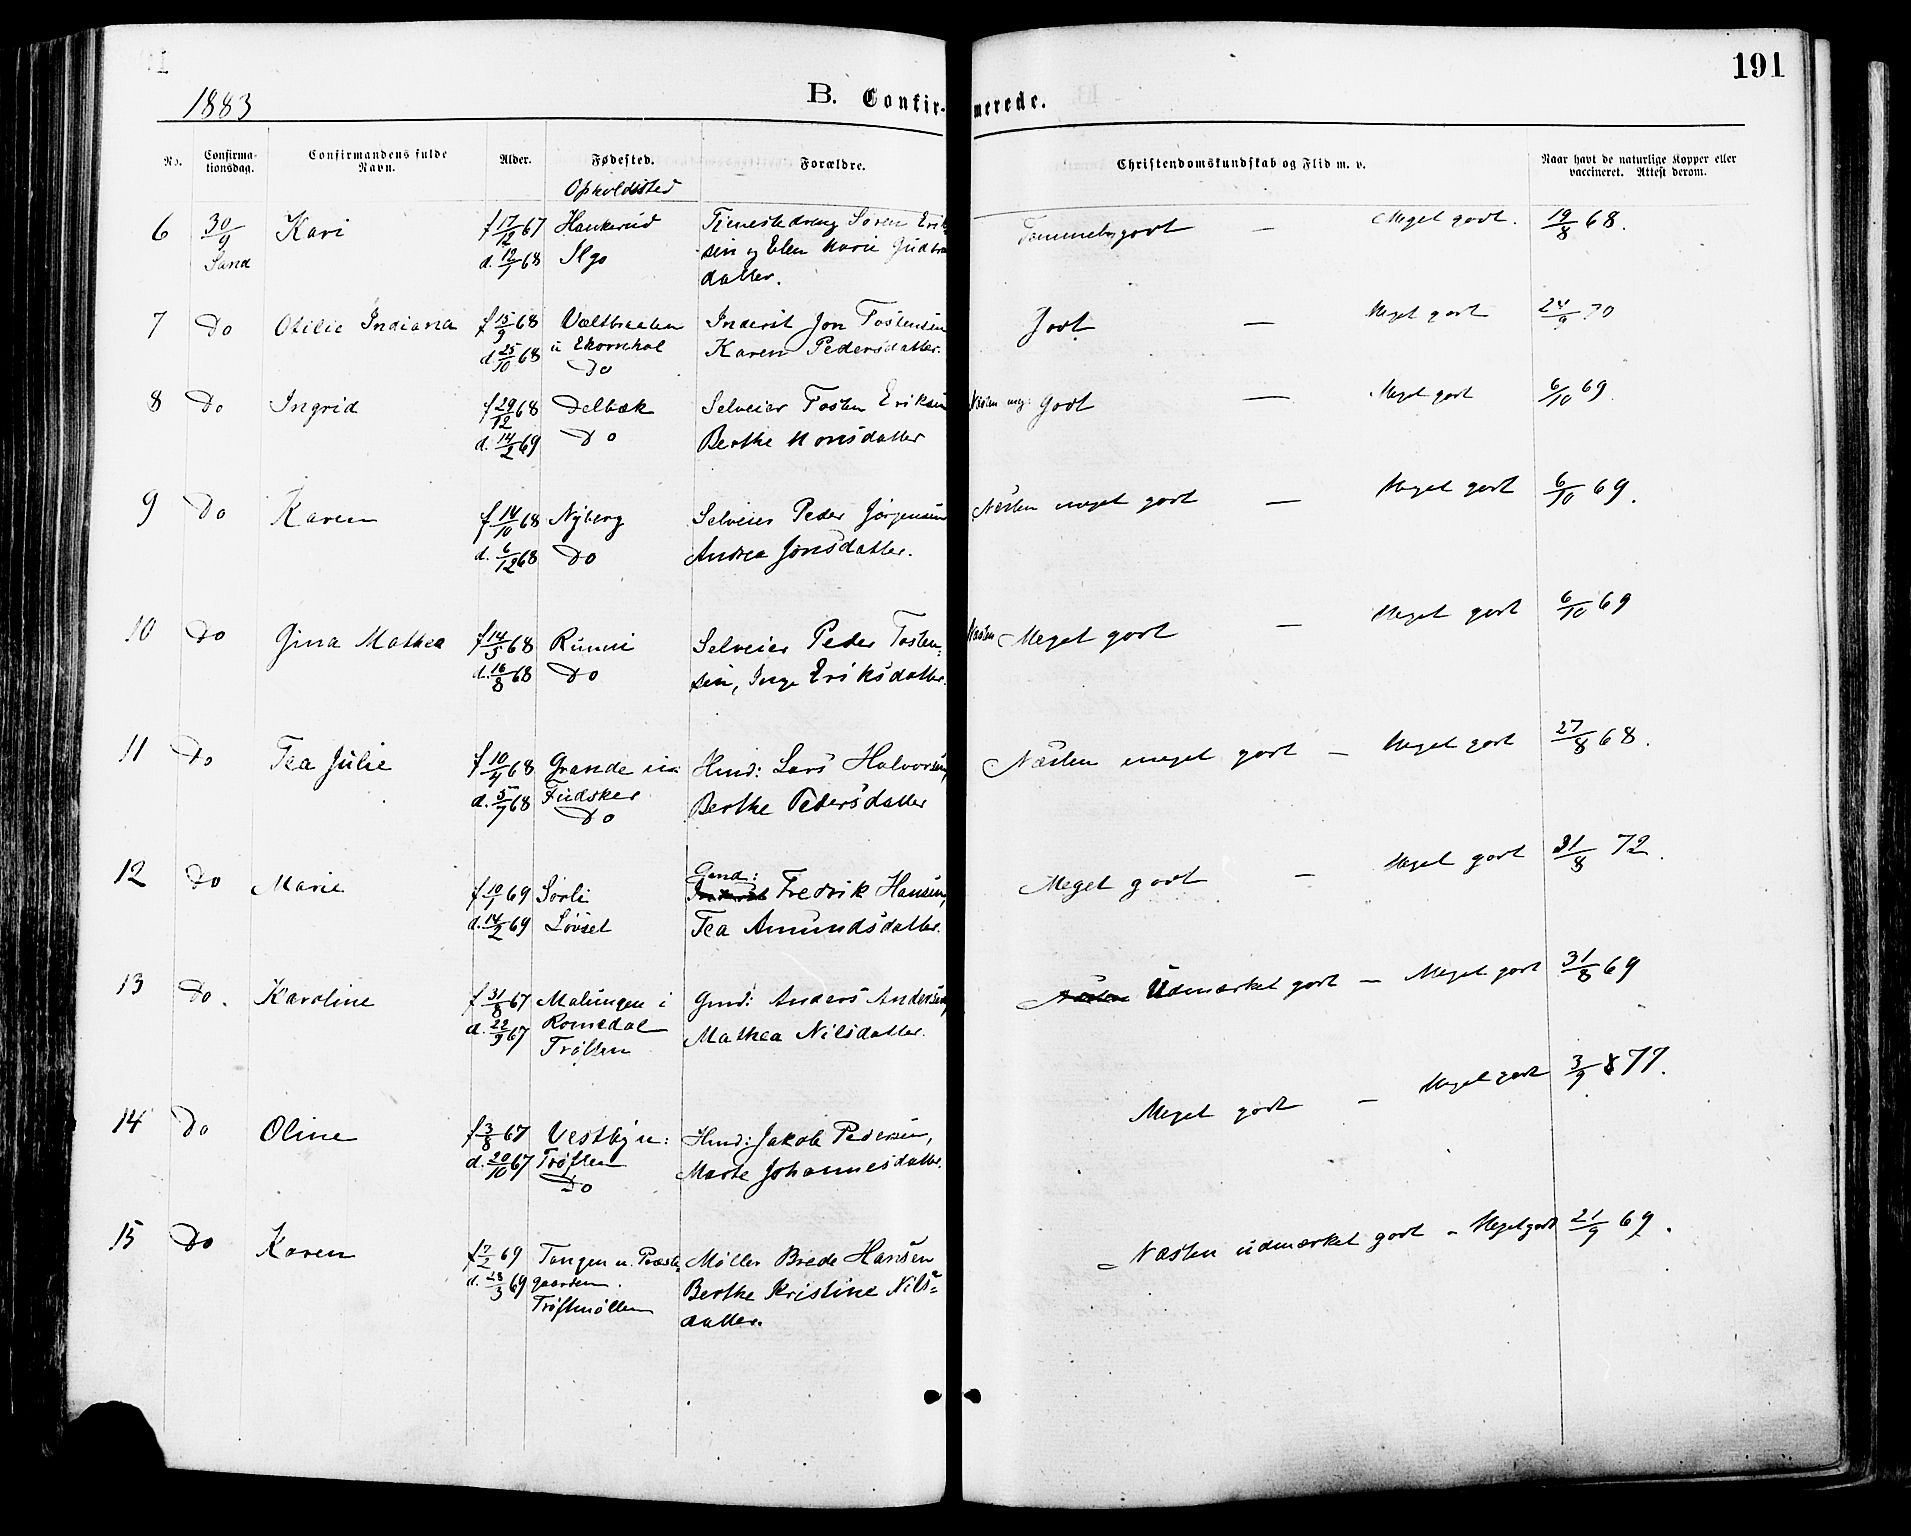 191
1883
B. Confirmerede.
No.
Confirma-
tionsdag.
Confirmandens fulde
Navn.
Alder.
Fødested.
Opholdssted
Forældre.
Christendomskundskab og Flid m. v.
Naar havt de naturlige Kopper eller
vaccineret. Attest derom.
6 30/9 Kari f 17/12 67 Haukerud Tjenestedreng Søren Erik- Temmelig godt — Meget godt. 19/8 68.
Sand d. 12/1 68 sen og Elen Marie
datter.
7 Do Otilie Indiana f 15/9 68 Væltbraaten Inderst Jon Tostensen Godt — Meget godt 24/9 70
d 25/10 68 u Ekornhol Karen Pedersdatter.
Do
8 Do Ingrid f 29/12 68 Delbæk Selveier Tosten Eriksen Næsten meg: Godt — Meget godt 6/10 69.
d. 14/2 69 Do Berthe Monsdatter
9 Do Karen f 14/10 68 Nyberg Selveier Peder Jørgensen Næsten meget godt — Meget godt 6/10 69.
d. 6/12 68 Do Andrea Jonsdatter.
10 Do Gina Mathea f 14/5 68 Rumei Selveier Peder Tosten- Næsten Meget godt — Meget godt 6/10 69
d. 16/8 68 Do sen, Inge Eriksdatter.
11 Do Tea Julie f 10/4 68 Grande u: Hmd: Lars Halvorsen, Næsten meget godt — Meget godt 27/8 68.
d. 5/7 68 Fudsker Berthe Pedersdatter
Do
Gmd:
12 Do Marie f 10/1 69 Sørli Fredrik Hansen, Meget godt — Meget godt 21/8 72.
d. 14/2 69 Løvset Tea Amundsdatter.
13 Do. Karoline f 31/8 67 Malungen i Gmd: Anders Andersen, Næsten Udmærket godt — Meget godt 31/8 69
d. 22/9 67 Romedal Mathea Nilsdatter.
Trøften
14 Do Oline f 3/8 67 Vestby u: Hmd: Jakob Pedersen, Meget godt — Meget godt 3/9 77.
d. 20/10 67 Trøften Marte Johannesdatter.
Do
15 Do Karen f 7/2 69 Tangen u. Præste- Møller Brede Hansen Næsten udmærket godt — Meget godt 21/9 69.
d. 28/3 69 gaarden. Berthe Kristine Nils-
Trøftmøllen datter.